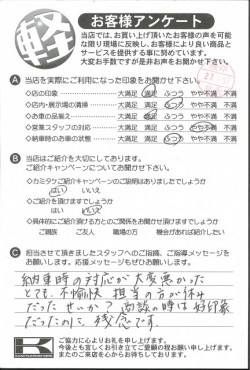 軽
お客様アンケート
当店では、お買い上げ頂いたお客様の声を可能
な限り現場に反映し、お客様により良い商品と
サービスを提供する事に努めています。
大変お手数ですが是非お声をお聞かせ下さい。
A 当店を実際にご利用になった印象をお聞かせ下さい。
◇店の印象 大満足 満足 ふつう やや不満 不満
◇店内・展示場の清掃 大満足 満足 ふつう やや不満 不満
◇お車の品揃え 大満足 満足 ふつう やや不満 不満
◇営業スタッフの対応 大満足 満足 ふつう やや不満 不満
◇納車時のお車の状態 大満足 満足 ふつう やや不満 不満
B 当店はご紹介を大切にしております。
ご紹介キャンペーンについてお聞かせ下さい。
◇カミタケご紹介キャンペーンのご説明はありましたでしょうか
はい いいえ
◇ご紹介を頂けますでしょうか
はい いいえ
◇具体的にご紹介頂ける方とのご関係をお聞かせ頂けますでしょうか
ご親族 ご友人 職場の方 機会があれば紹介したい
C 担当させて頂きましたスタッフへのご指摘、ご指導メッセージを
お願いします。応援メッセージもぜひお願いします。
納車時の対応が大変悪かった
とても不愉快 担当の方が休み
だったせいか? 商談の時は好印象
だったのに残念です。
K
ご協力に心よりお礼を申し上げます。
今後とも宜しくお引き立てご愛顧の程お願い申し上げます。
またのご来店を心からお待ちしております。